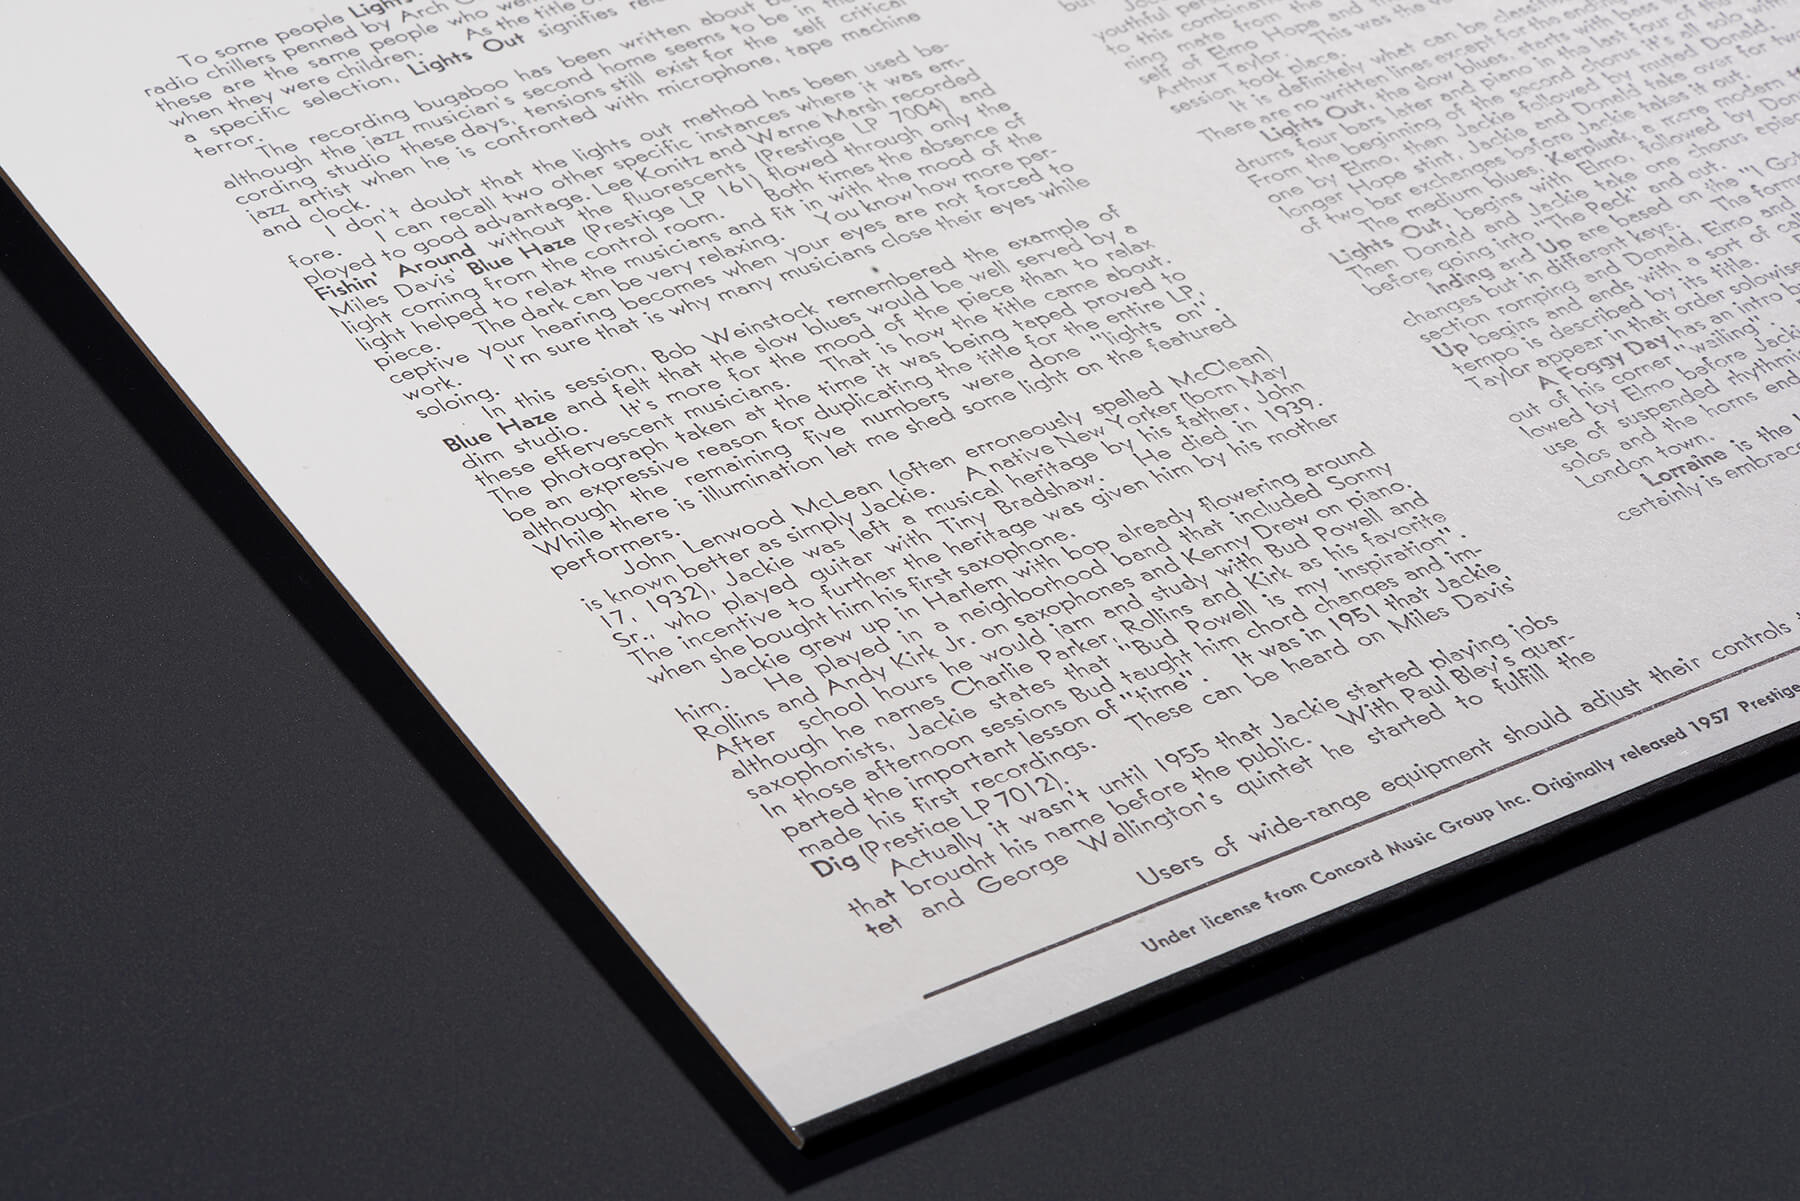 To some people Lights
radio chillers penned by Arch
these are the same people who
when they were children. As the title of
a specific selection, Lights Out signifies
terror.
The recording bugaboo has been written about
although the jazz musician's second home seems to be in the
cording studio these days, tensions still exist for the self critical
jazz artist when he is confronted with microphone, tape machine
and clock.
I don't doubt that the lights out method has been used be-
fore. I can recall two other specific instances where it was em-
ployed to good advantage. Lee Konitz and Warne Marsh recorded
Fishin' Around without the fluorescents (Prestige LP 7004) and
Miles Davis' Blue Haze (Prestige LP 161) flowed through only the
light coming from the control room. Both times the absence of
light helped to relax the musicians and fit in with the mood of the
piece. The dark can be very relaxing. You know how more per-
ceptive your hearing becomes when your eyes are not forced to
work. I'm sure that is why many musicians close their eyes while
soloing.
In this session, Bob Weinstock remembered the example of
Blue Haze and felt that the slow blues would be well served by a
dim studio. It's more for the mood of the piece than to relax
these effervescent musicians. That is how the title came about.
The photograph taken at the time it was being taped proved to
be an expressive reason for duplicating the title for the entire LP,
although the remaining five numbers were done "lights on"
While there is illumination let me shed some light on the featured
performers.
John Lenwood McLean (often erroneously spelled McClean)
is known better as simply Jackie. A native New Yorker (born May
17, 1932), Jackie was left a musical heritage by his father, John
Sr., who played guitar with Tiny Bradshaw. He died in 1939.
The incentive to further the heritage was given him by his mother
when she bought him his first saxophone.
Jackie grew up in Harlem with bop already flowering around
him. He played in a neighborhood band that included Sonny
Rollins and Andy Kirk Jr. on saxophones and Kenny Drew on piano.
After school hours he would jam and study with Bud Powell and
although he names Charlie Parker, Rollins and Kirk as his favorite
saxophonists, Jackie states that "Bud Powell is my inspiration".
In those afternoon sessions Bud taught him chord changes and im-
parted the important lesson of "time". It was in 1951 that Jackie
made his first recordings. These can be heard on Miles Davis'
Dig (Prestige LP 7012).
Actually it wasn't until 1955 that Jackie started playing jobs
that brought his name before the public. With Paul Bley's quar-
tet and George Wallington's quintet he started to fulfill the
youthful
to this combination
ning mate from the
self of Elmo Hope and
Arthur Taylor. This was the
session took place.
It is definitely what can be classified
There are no written lines except for the ending
Lights Out, the slow blues, starts with bass
drums four bars later and piano in the last four of the
From the beginning of the second chorus it's all solo with
one by Elmo, then Jackie followed by muted Donald.
longer Hope stint, Jackie and Donald take over for two
of two bar exchanges before Jackie takes it out.
The medium blues, Kerplunk, a more modern
Lights Out, begins with Elmo, followed by
Then Donald and Jackie take one chorus apiece
before going into "The Peck" and out.
Inding and Up are based on the "I Got
changes but in different keys. The former
section romping and Donald, Elmo and
Up begins and ends with a sort of
tempo is described by its title.
Taylor appear in that order solowise
A Foggy Day has an intro
out of his corner "wailing"
lowed by Elmo before
use of suspended
solos and the horns end
London town.
Lorraine is the
certainly is
Users of wide-range equipment should adjust their controls
Under license from Concord Music Group Inc. Originally released 1957 Prestige